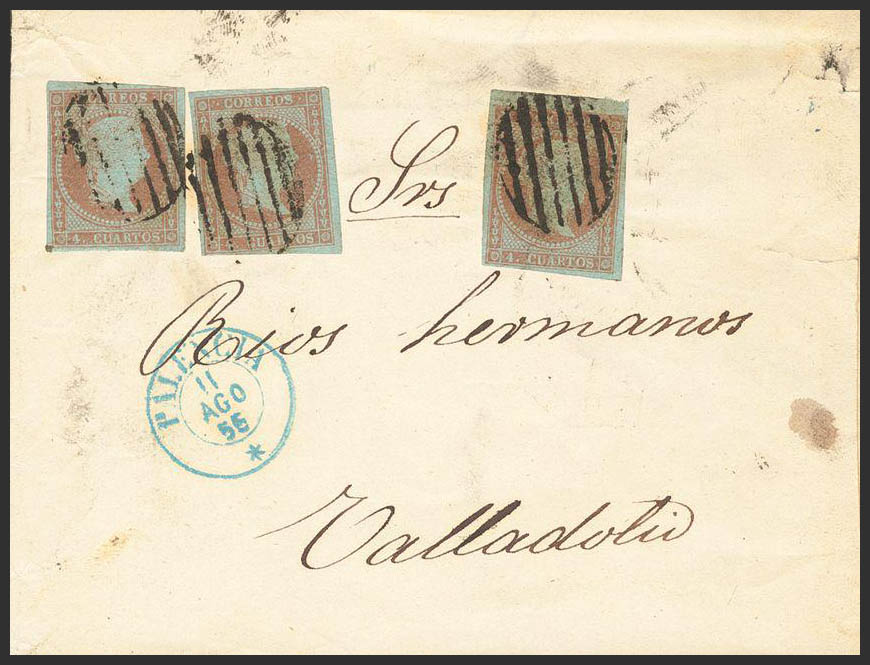 CORREOS
4. CUARTOS
CORREOS
CUARTOS
4. CUARTOS
Srs
Rios hermanos
PALENCIA
11
AGO
56
*
Valladolid